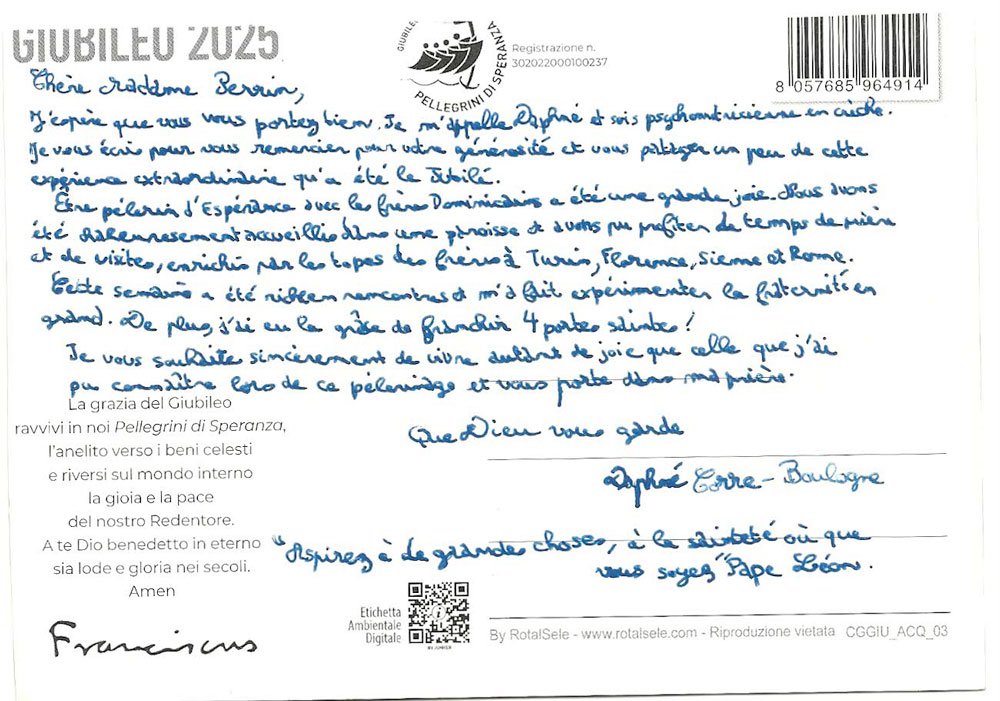 GIUBILEO 2025
GIUBILEO
PELLEGRINI DI SPERANZA
Registrazione n.
302022000100237
8 057685 964914
Chère Madame Perrin,
J'espère que vous vous portez bien. Je m'appelle Daphné et suis psychomotricienne en crèche.
Je vous écris pour vous remercier pour votre générosité et vous partager un peu de cette
expérience extraordinaire qu'a été le Jubilé.
Être pèlerin d'Espérance avec les frères Dominicains a été une grande joie. Nous avons
été chaleureusement accueillis dans une paroisse et avons pu profiter de temps de prière
et de visites, enrichis par les topos des frères à Turin, Florence, Sienne et Rome.
Cette semaine a été riche en rencontres et m'a fait expérimenter la fraternité en
grand. De plus, j'ai eu la grâce de franchir 4 portes saintes !
Je vous souhaite sincèrement de vivre autant de joie que celle que j'ai
pu connaître lors de ce pèlerinage et vous porte dans ma prière.
La grazia del Giubileo
ravvivi in noi Pellegrini di Speranza,
l'anelito verso i beni celesti
e riversi sul mondo interno
la gioia e la pace
del nostro Redentore.
A te Dio benedetto in eterno
sia lode e gloria nei secoli.
Amen
Franciscus
Que Dieu vous garde
Daphné Corre-Boulogne
"Aspirez à de grandes choses, à la sainteté où que
vous soyez" Pape Léon.
Etichetta
Ambientale
Digitale
By RotalSele - www.rotalsele.com - Riproduzione vietata CGGIU_ACQ_03